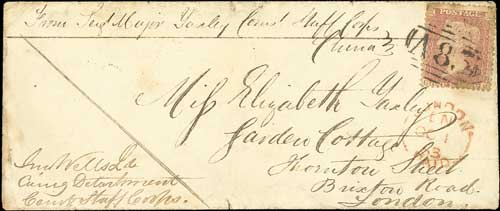 From Serj Major Yaxley Comst Staff Corps
China
POSTAGE
A 8
Miss Elizabeth Yaxley
Garden Cottage
Thornton Street
Brixton Road
London.
LONDON
Jno Wells Ld
Comg Detachment
Comst Staff Corps.